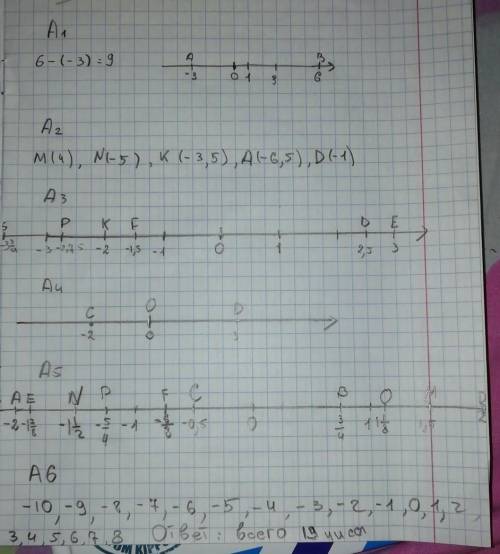 A1
6-(-3)=9
A B
-3 0 1 3 6
A2
M(4), N(-5), K(-3,5), A(-6,5), D(-1)
A3
S P K F D E
-3 -2,75 -2 -1,5 -1 0 1 2,5 3
A4
C O D
-2 0 3
A5
A E N P F C B O M
-2 -1 1/2 -5/4 -1 -0,5 0 3/4 1 1 1/8 1,5 2
A6
-10, -9, -8, -7, -6, -5, -4, -3, -2, -1, 0, 1, 2,
3, 4, 5, 6, 7, 8 Ответ: всего 19 чисел